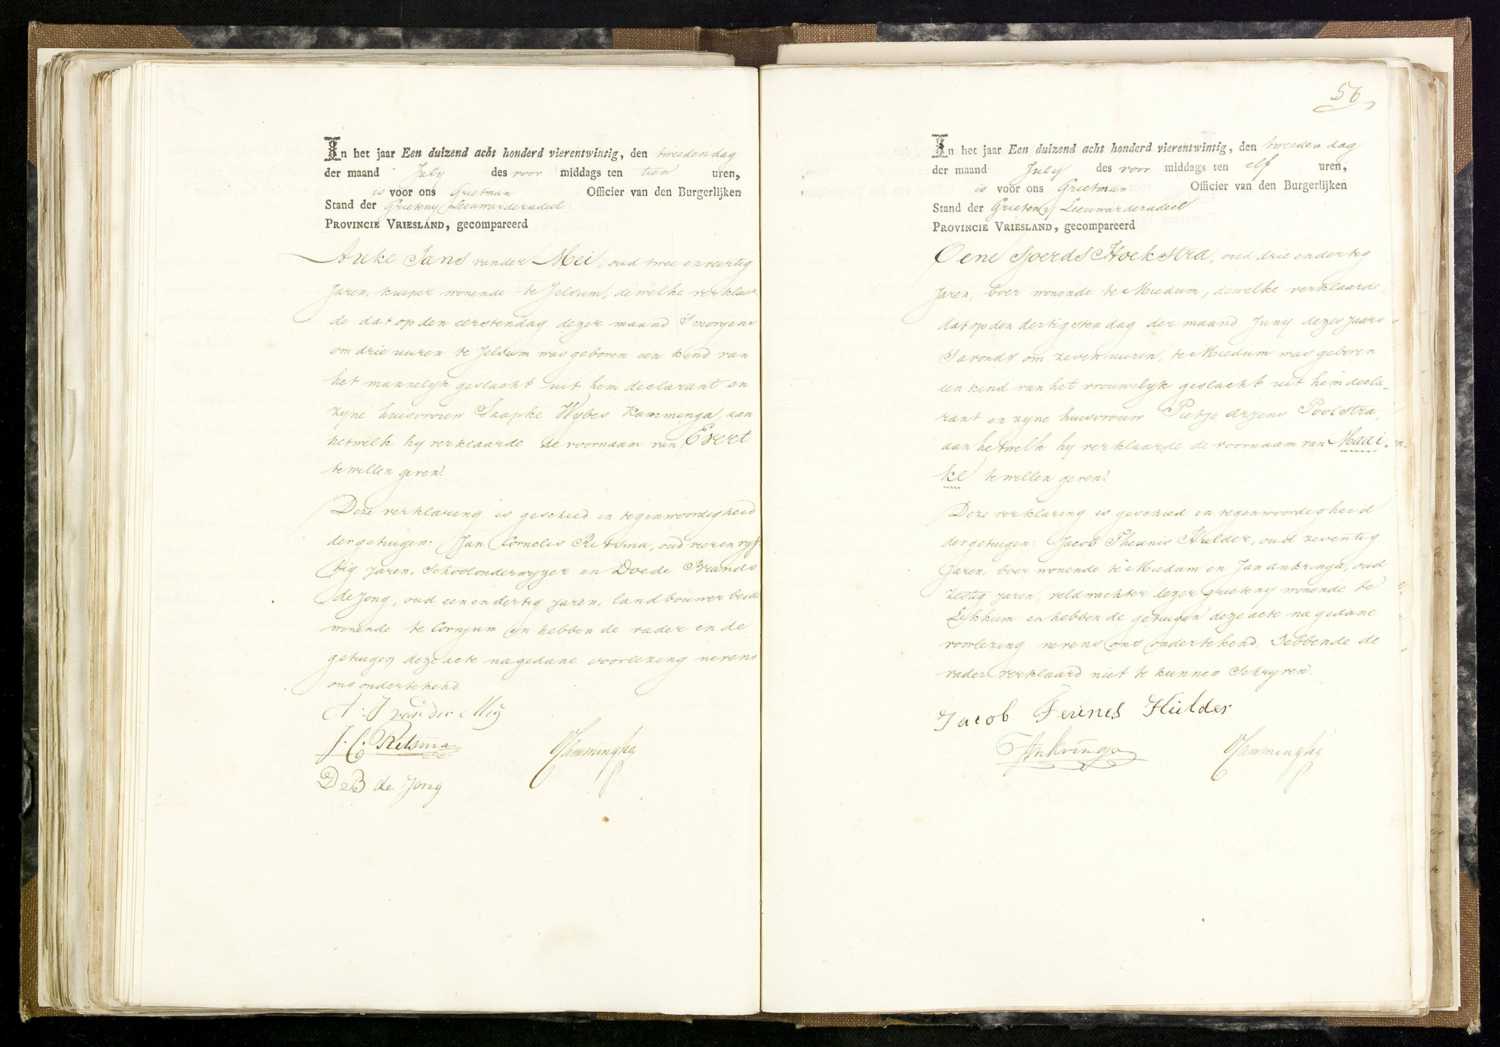 In het jaar Een duizend acht honderd vierentwintig, den tweeden dag
der maand July des voor middags ten tien uren,
is voor ons Grietman Officier van den Burgerlijken
Stand der Grieteny Leeuwarderadeel
PROVINCIE VRIESLAND, gecompareerd
Auke Jans vander Mei, oud twee en veertig
Jaren, kuiper wonende te Jelsum, dewelke verklaar
de dat op den eersten dag dezer maand Smorgens
om drie uuren te Jelsum was geboren een kind van
het mannelyk geslacht uit hem declarant en
zyne huisvrouw Taapke Wybes Kamminga, aan
hetwelk hy verklaarde de voornaam van Evert
te willen geven!
Deze verklaring is geschied in tegenwoordigheid
der getuigen: Jan Cornelis Reitsma, oud vieren vyf
tig Jaren, Schoolonderwyzer en Doede Brands
de Jong, oud eenendertig jaren, landbouwer beide
wonende te Cornjum en hebben de vader en de
getuigen deze acte na gedane voorlezing nevens
ons ondertekend
A: J van der Meij
J: C: Reitsma
D B de Jong
56
In het jaar Een duizend acht honderd vierentwintig, den tweeden dag
der maand July des voor middags ten elf uren,
is voor ons Grietman Officier van den Burgerlijken
Stand der Grieteny Leeuwarderadeel
PROVINCIE VRIESLAND, gecompareerd
Oene Sjoerds Hoekstra, oud drie endertig
Jaren, boer wonende te Miedum, dewelke verklaarde
dat op den dertigsten dag der maand Juny dezes Jaars
Savonds om zeven uuren, te Miedum was geboren
een kind van het vrouwelyk geslacht uit hem decla-
rant en zyne huisvrouw Pietje Arjens Poelstra,
aan hetwelk hy verklaarde de voornaam van Maai-
ke te willen geven!
Deze verklaring is geschied in tegenwoordigheid
der getuigen: Jacob Theunis Hulder, oud zeventig
Jaren, boer wonende te Miedum en Jan Ankringa, oud
zestig jaren, veldwachter dezer grieteny wonende te
Lekkum en hebben de getuigen deze acte na gedane
voorlezing nevens ons ondertekend. Hebbende de
vader verklaard niet te kunnen Schryven
Jacob Teunes Hulder